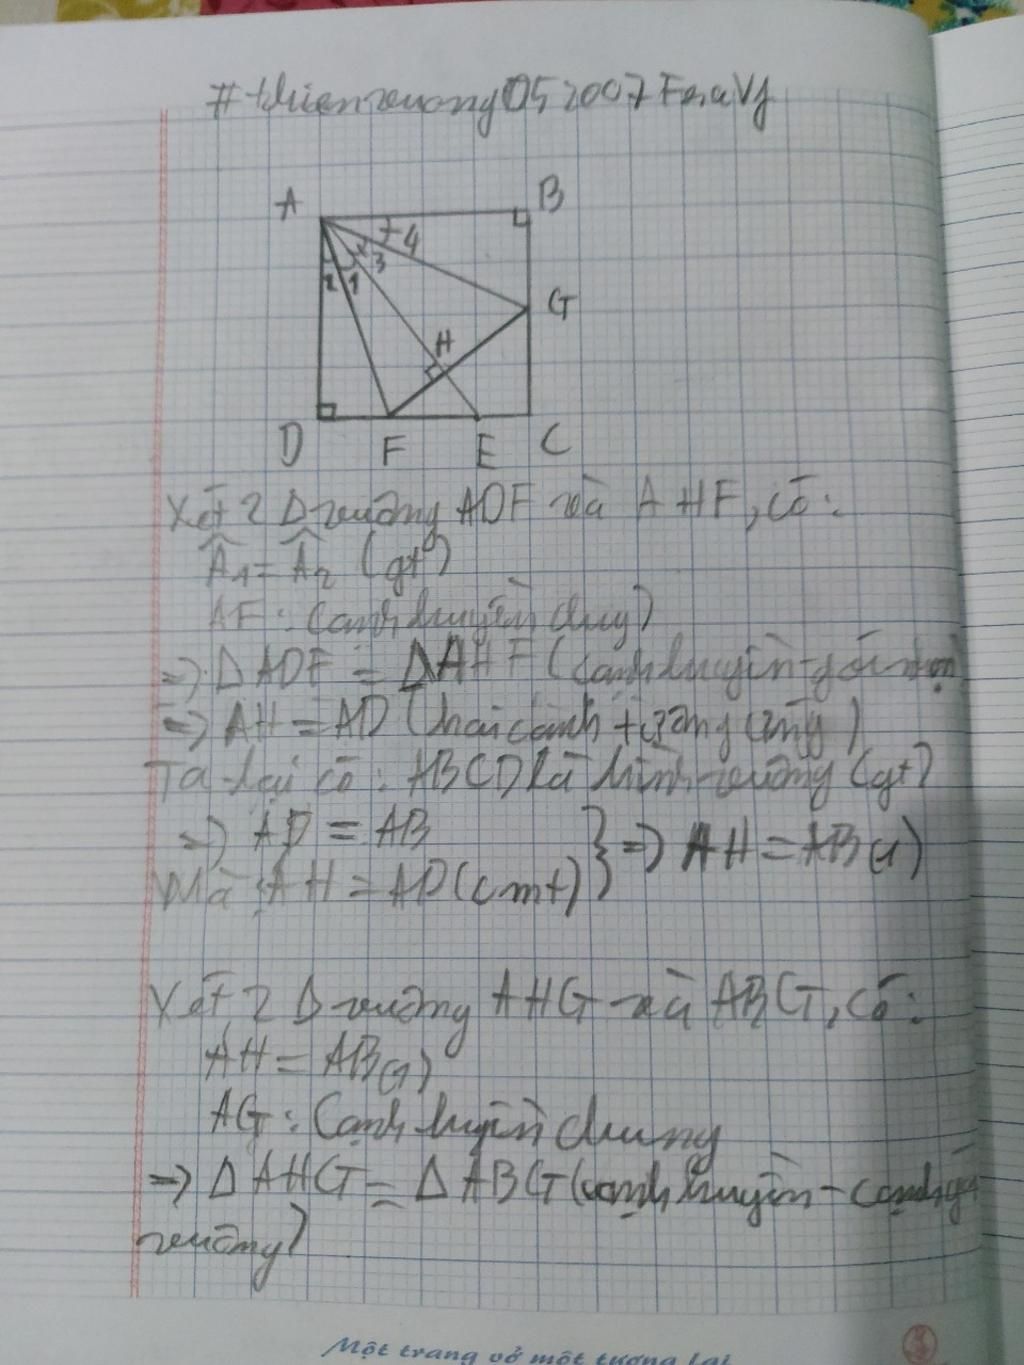 #thienvuong052007FearVJ
A
B
4
2
3
2 1
G
H
D
F
E
C
Xét 2 Δ vuông ADF và AHF, có:
Â1 = Â2 (gt)
AF: Cạnh huyền chung
=> Δ ADF = Δ AHF (cạnh huyền-góc nhọn)
=> AH = AD (hai cạnh tương ứng)
Ta lại có: ABCD là hình vuông (gt)
=> AD = AB
} => AH = AB (1)
Mà AH = AD (cmt)
Xét 2 Δ vuông AHG và ABG, có:
AH = AB (1)
AG: Cạnh huyền chung
=> Δ AHG = Δ ABG (cạnh huyền - cạnh góc
vuông)
Một trang vở một tương lai